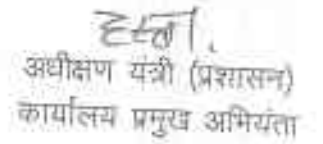 हस्ता.
अधीक्षण यंत्री (प्रशासन)
कार्यालय प्रमुख अभियंता